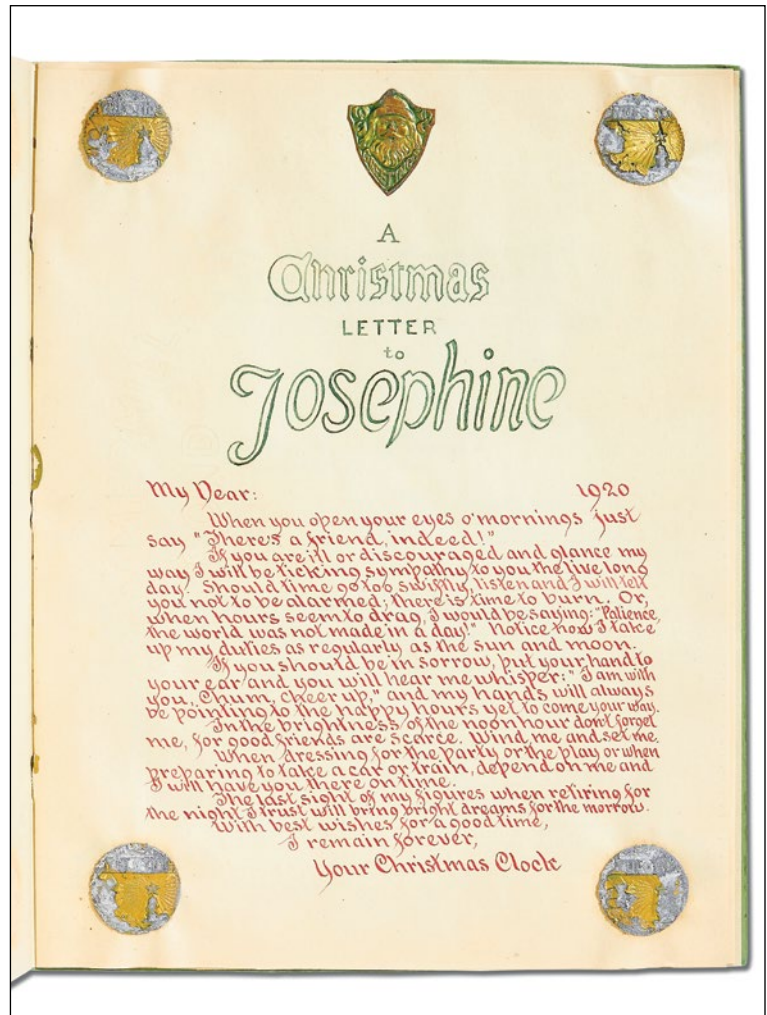 A
Christmas
LETTER
to
Josephine
My Dear: 1920
When you open your eyes o'mornings just
say "There's a friend, indeed!"
If you are ill or discouraged and glance my
way I will be ticking sympathy to you the live long
day. Should time go too swiftly, listen and I will tell
you not to be alarmed; there is time to burn. Or,
when hours seem to drag, I would be saying: "Patience,
the world was not made in a day!" Notice how I take
up my duties as regularly as the sun and moon.
If you should be in sorrow, put your hand to
your ear and you will hear me whisper: "I am with
you, Chum, cheer up," and my hands will always
be pointing to the happy hours yet to come your way.
In the brightness of the noon hour don't forget
me, for good friends are scarce. Wind me and set me.
When dressing for the party or the play or when
preparing to take a car or train, depend on me and
I will have you there on time.
The last sight of my figures when retiring for
the night I trust will bring bright dreams for the morrow.
With best wishes for a good time,
I remain forever,
Your Christmas Clock